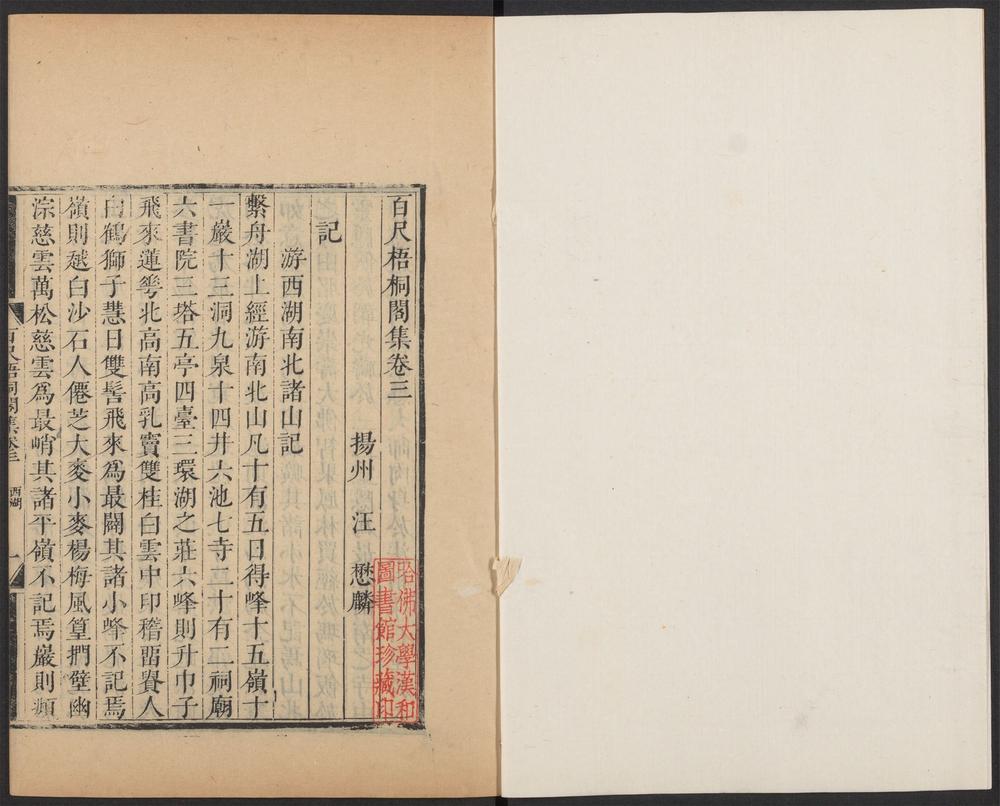 百尺梧桐閣集卷三
揚州 汪 懋麟
記
游西湖南北諸山記
繫舟湖上經游南北山凡十有五日得峰十五嶺十
一巖十三洞九泉十四井六池七寺二十有二祠廟
六書院三塔五亭四臺三環湖之莊六峰則升巾子
飛來蓮𠌶北高南高乳竇雙桂白雲中印稽畱賚人
白鶴獅子慧日雙髻飛來爲最闢其諸小峰不記焉
嶺則越白沙石人僊芝大麥小麥楊梅風篁捫壁幽
淙慈雲萬松慈雲爲最峭其諸平嶺不記焉巖則頫
百尺梧桐閣集卷三 西湖 一
哈佛大學漢和
圖書館珍藏印